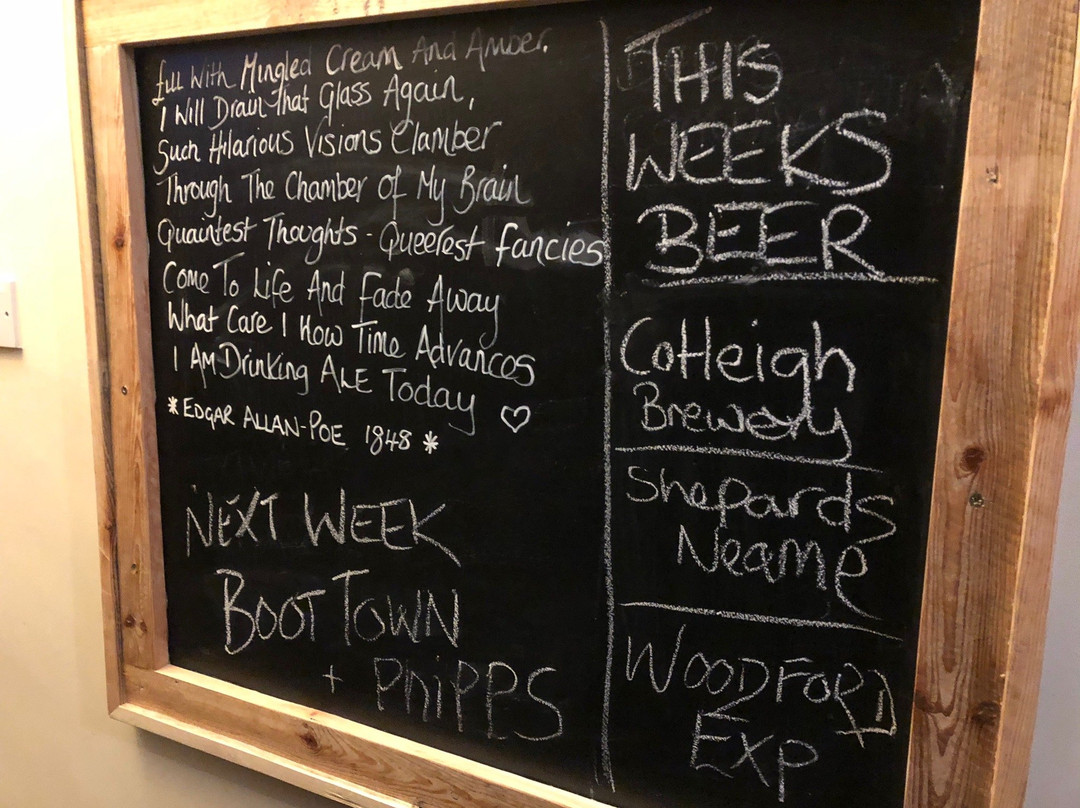 fill With Mingled Cream And Amber,
I Will Drain That Glass Again,
Such Hilarious Visions Clamber
Through The Chamber of My Brain
Quaintest Thoughts - Queerest fancies
Come To Life And Fade Away
What Care I How Time Advances
I Am Drinking ALE Today
* EDGAR ALLAN-POE 1848 *
NEXT WEEK
BOOT TOWN
+ PHIPPS
THIS
WEEKS
BEER
Cotleigh
Brewery
Shepards
Neame
WOODFORD
EXP